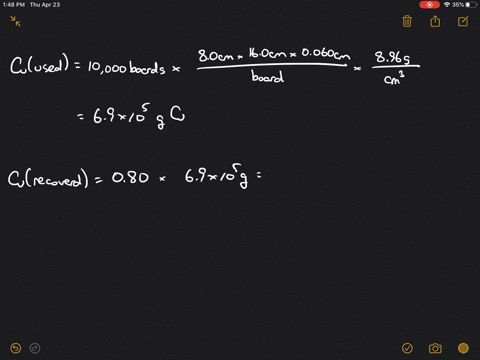 1:48 PM Thu Apr 23 35%
Cu(used) = 10,000 boards × 8.0cm × 16.0cm × 0.060cm / board × 8.96g / cm³
= 6.9 × 10⁵ g Cu
Cu(recoverd) = 0.80 × 6.9 × 10⁵ g =